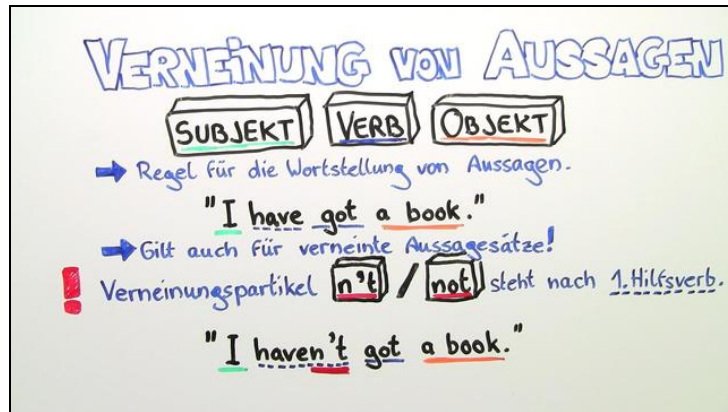 VERNEINUNG VON AUSSAGEN
SUBJEKT VERB OBJEKT
Regel für die Wortstellung von Aussagen.
"I have got a book."
Gilt auch für verneinte Aussagesätze!
! Verneinungspartikel n't / not steht nach 1. Hilfsverb.
"I haven't got a book."